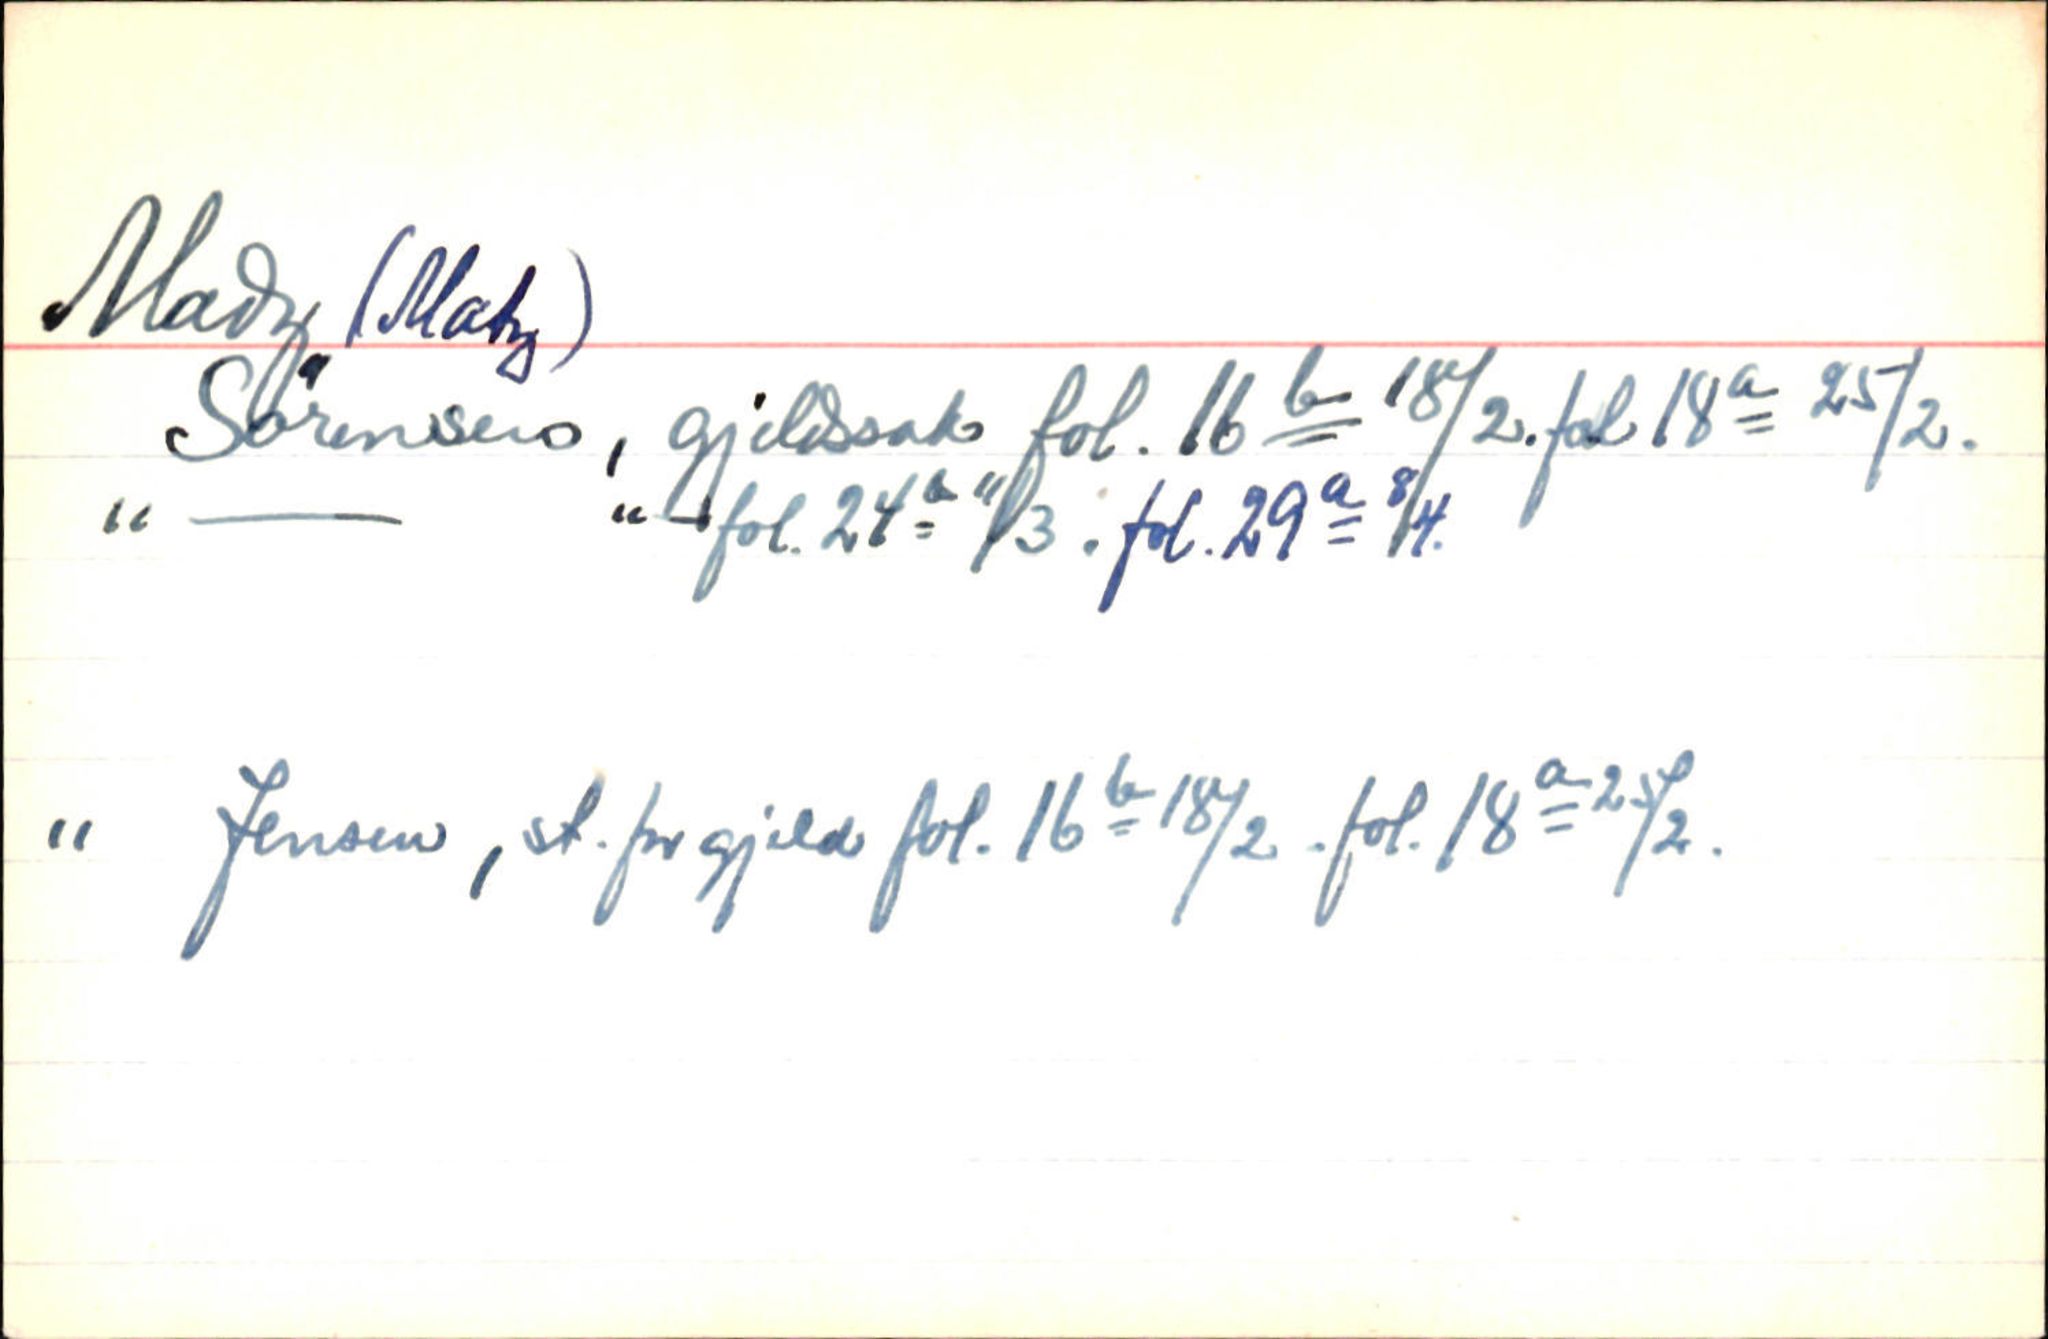 Madz (Matz)
Sörensen, gjeldssak fol. 16 b 18/2. fol 18 a 25/2.
" — " — fol. 24 a 11/3. fol. 29 a 8/4.
" Jensen, st. for gjeld fol. 16 b 18/2. fol. 18 a 25/2.